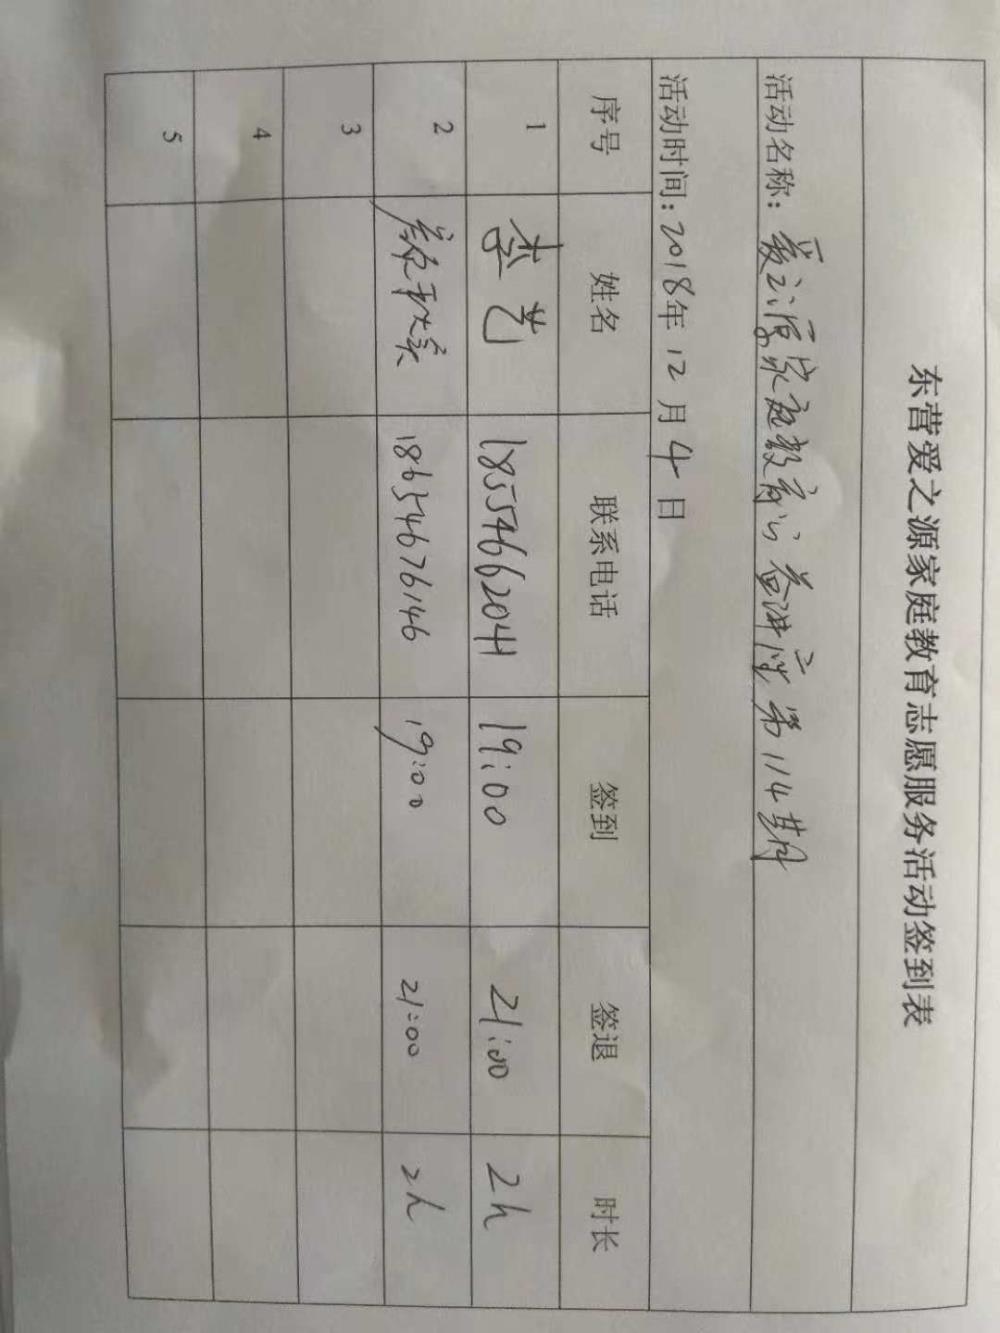 东营爱之源家庭教育志愿服务活动签到表
活动名称：爱之源家庭教育公益讲座第114期
活动时间：2018年12月4日
序号 姓名 联系电话 签到 签退 时长
1 李艺 18554662041 19:00 21:00 2h
2 18654676146 19:00 21:00 2h
3
4
5